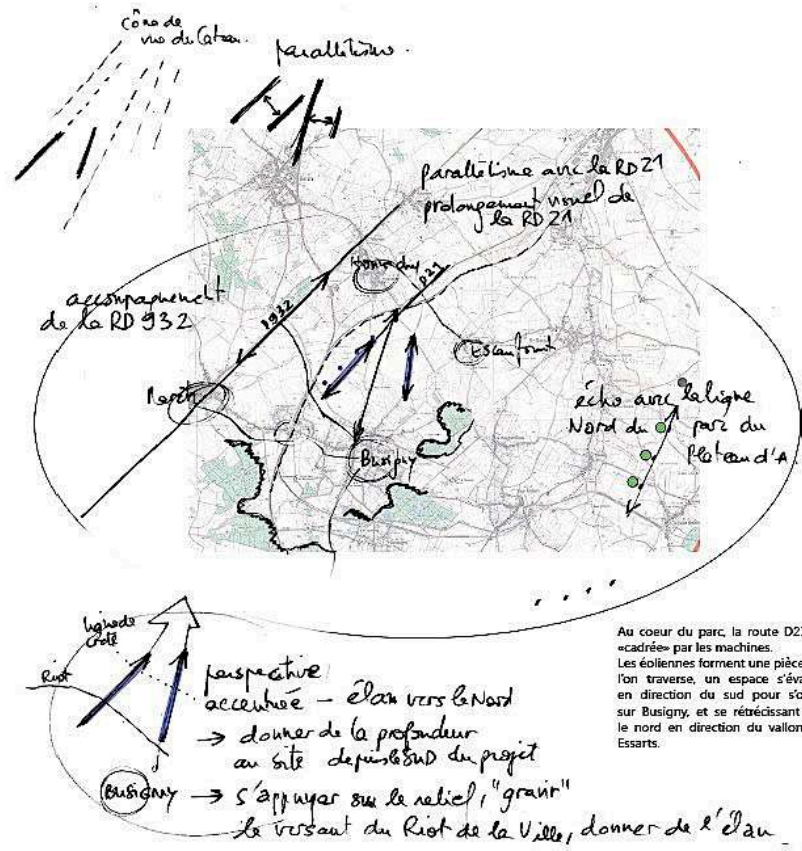 cône de
vue du Cateau.
parallélisme.
parallélisme avec la RD21
prolongement visuel de
la RD21
accompagnement
de la RD 932
D932
Honnechy
D21
Escaufourt
Maretz
Busigny
écho avec la ligne
Nord du parc du
Plateau d'A
ligne de
crête
Riot
perspective
accentuée – élan vers le Nord
→ donner de la profondeur
au site depuis le SUD du projet
BUSIGNY → s'appuyer sur le relief, "gravir"
le versant du Riot de la Ville, donner de l'élan
Au coeur du parc, la route D2
«cadrée» par les machines.
Les éoliennes forment une pièce
l'on traverse, un espace s'éva
en direction du sud pour s'o
sur Busigny, et se rétrécissant
le nord en direction du vallon
Essarts.